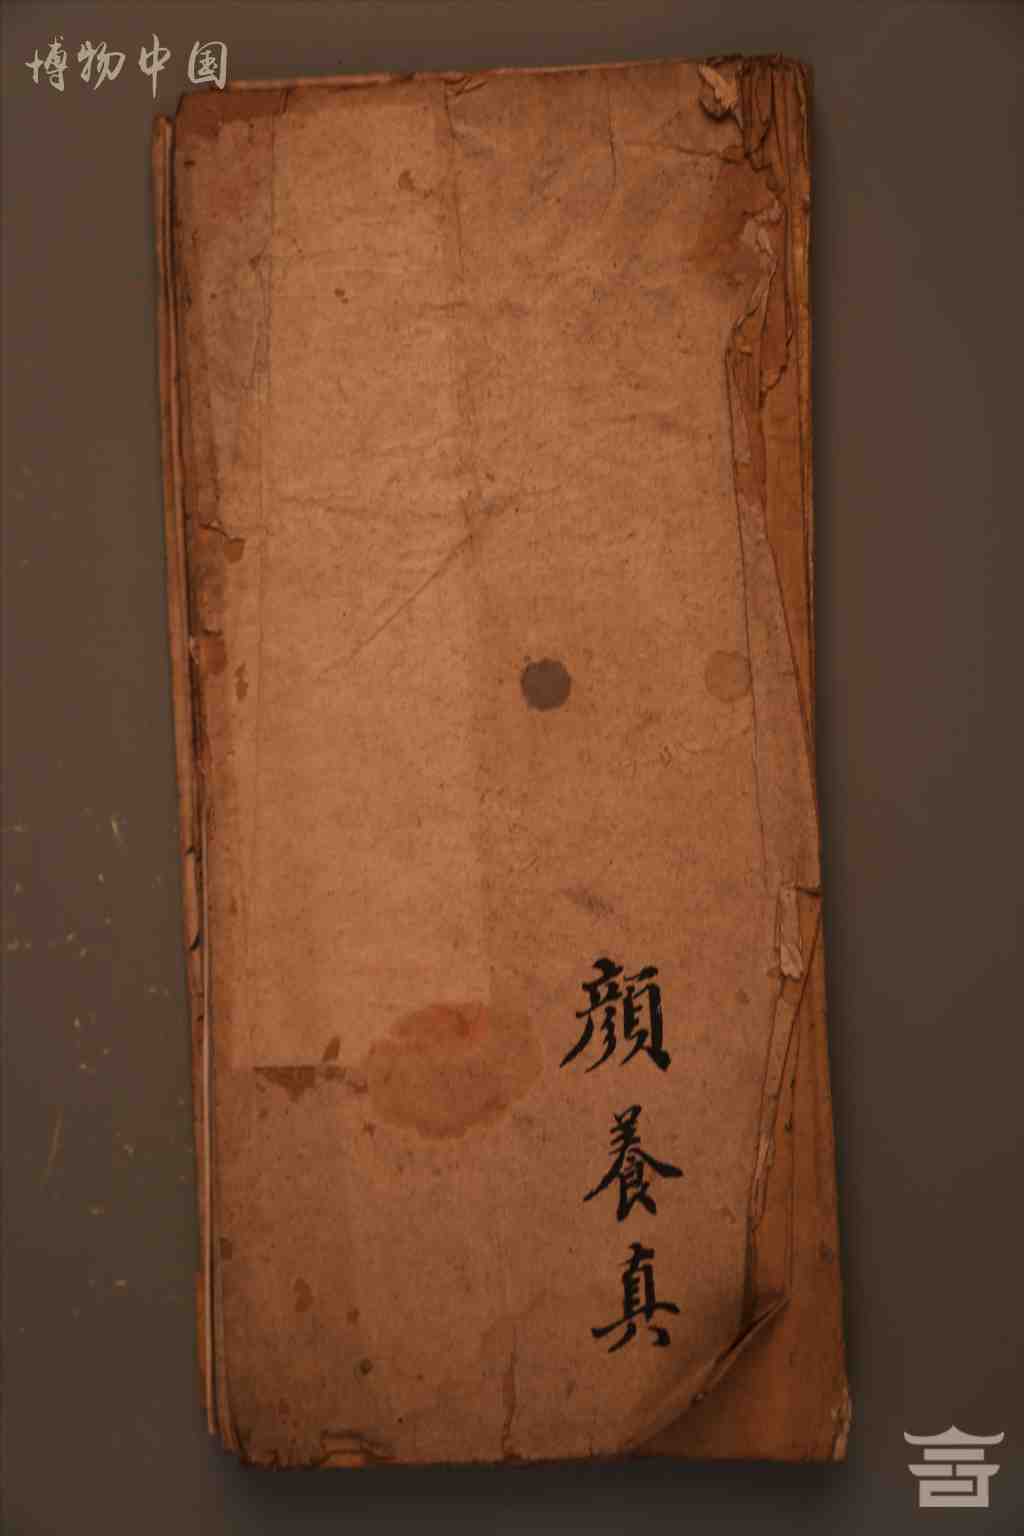 博物中国
顔養真